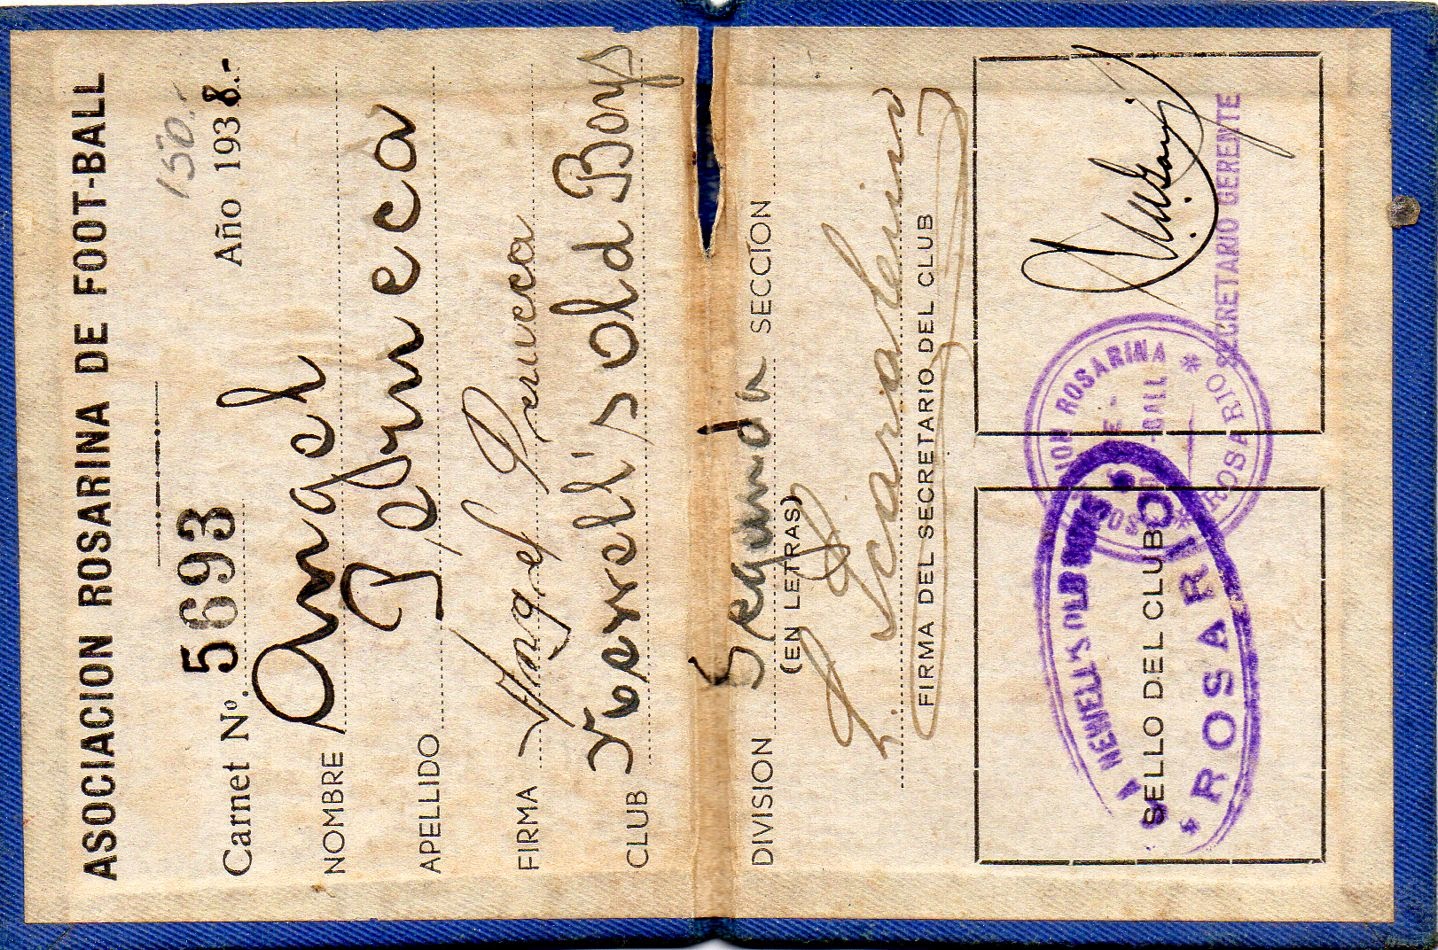 ASOCIACION ROSARINA DE FOOT-BALL
150.-
Carnet Nº. 5693 Año 1938.-
NOMBRE Angel
APELLIDO Perucca
FIRMA Angel Perucca
CLUB Newell's old Boys
DIVISION Segunda SECCION
(EN LETRAS)
FIRMA DEL SECRETARIO DEL CLUB
A NEWELL'S OLD BOYS
SELLO DEL CLUB
* ROSARIO
ION ROSARINA
DE
-BALL
* ROSARIO *
SECRETARIO GERENTE